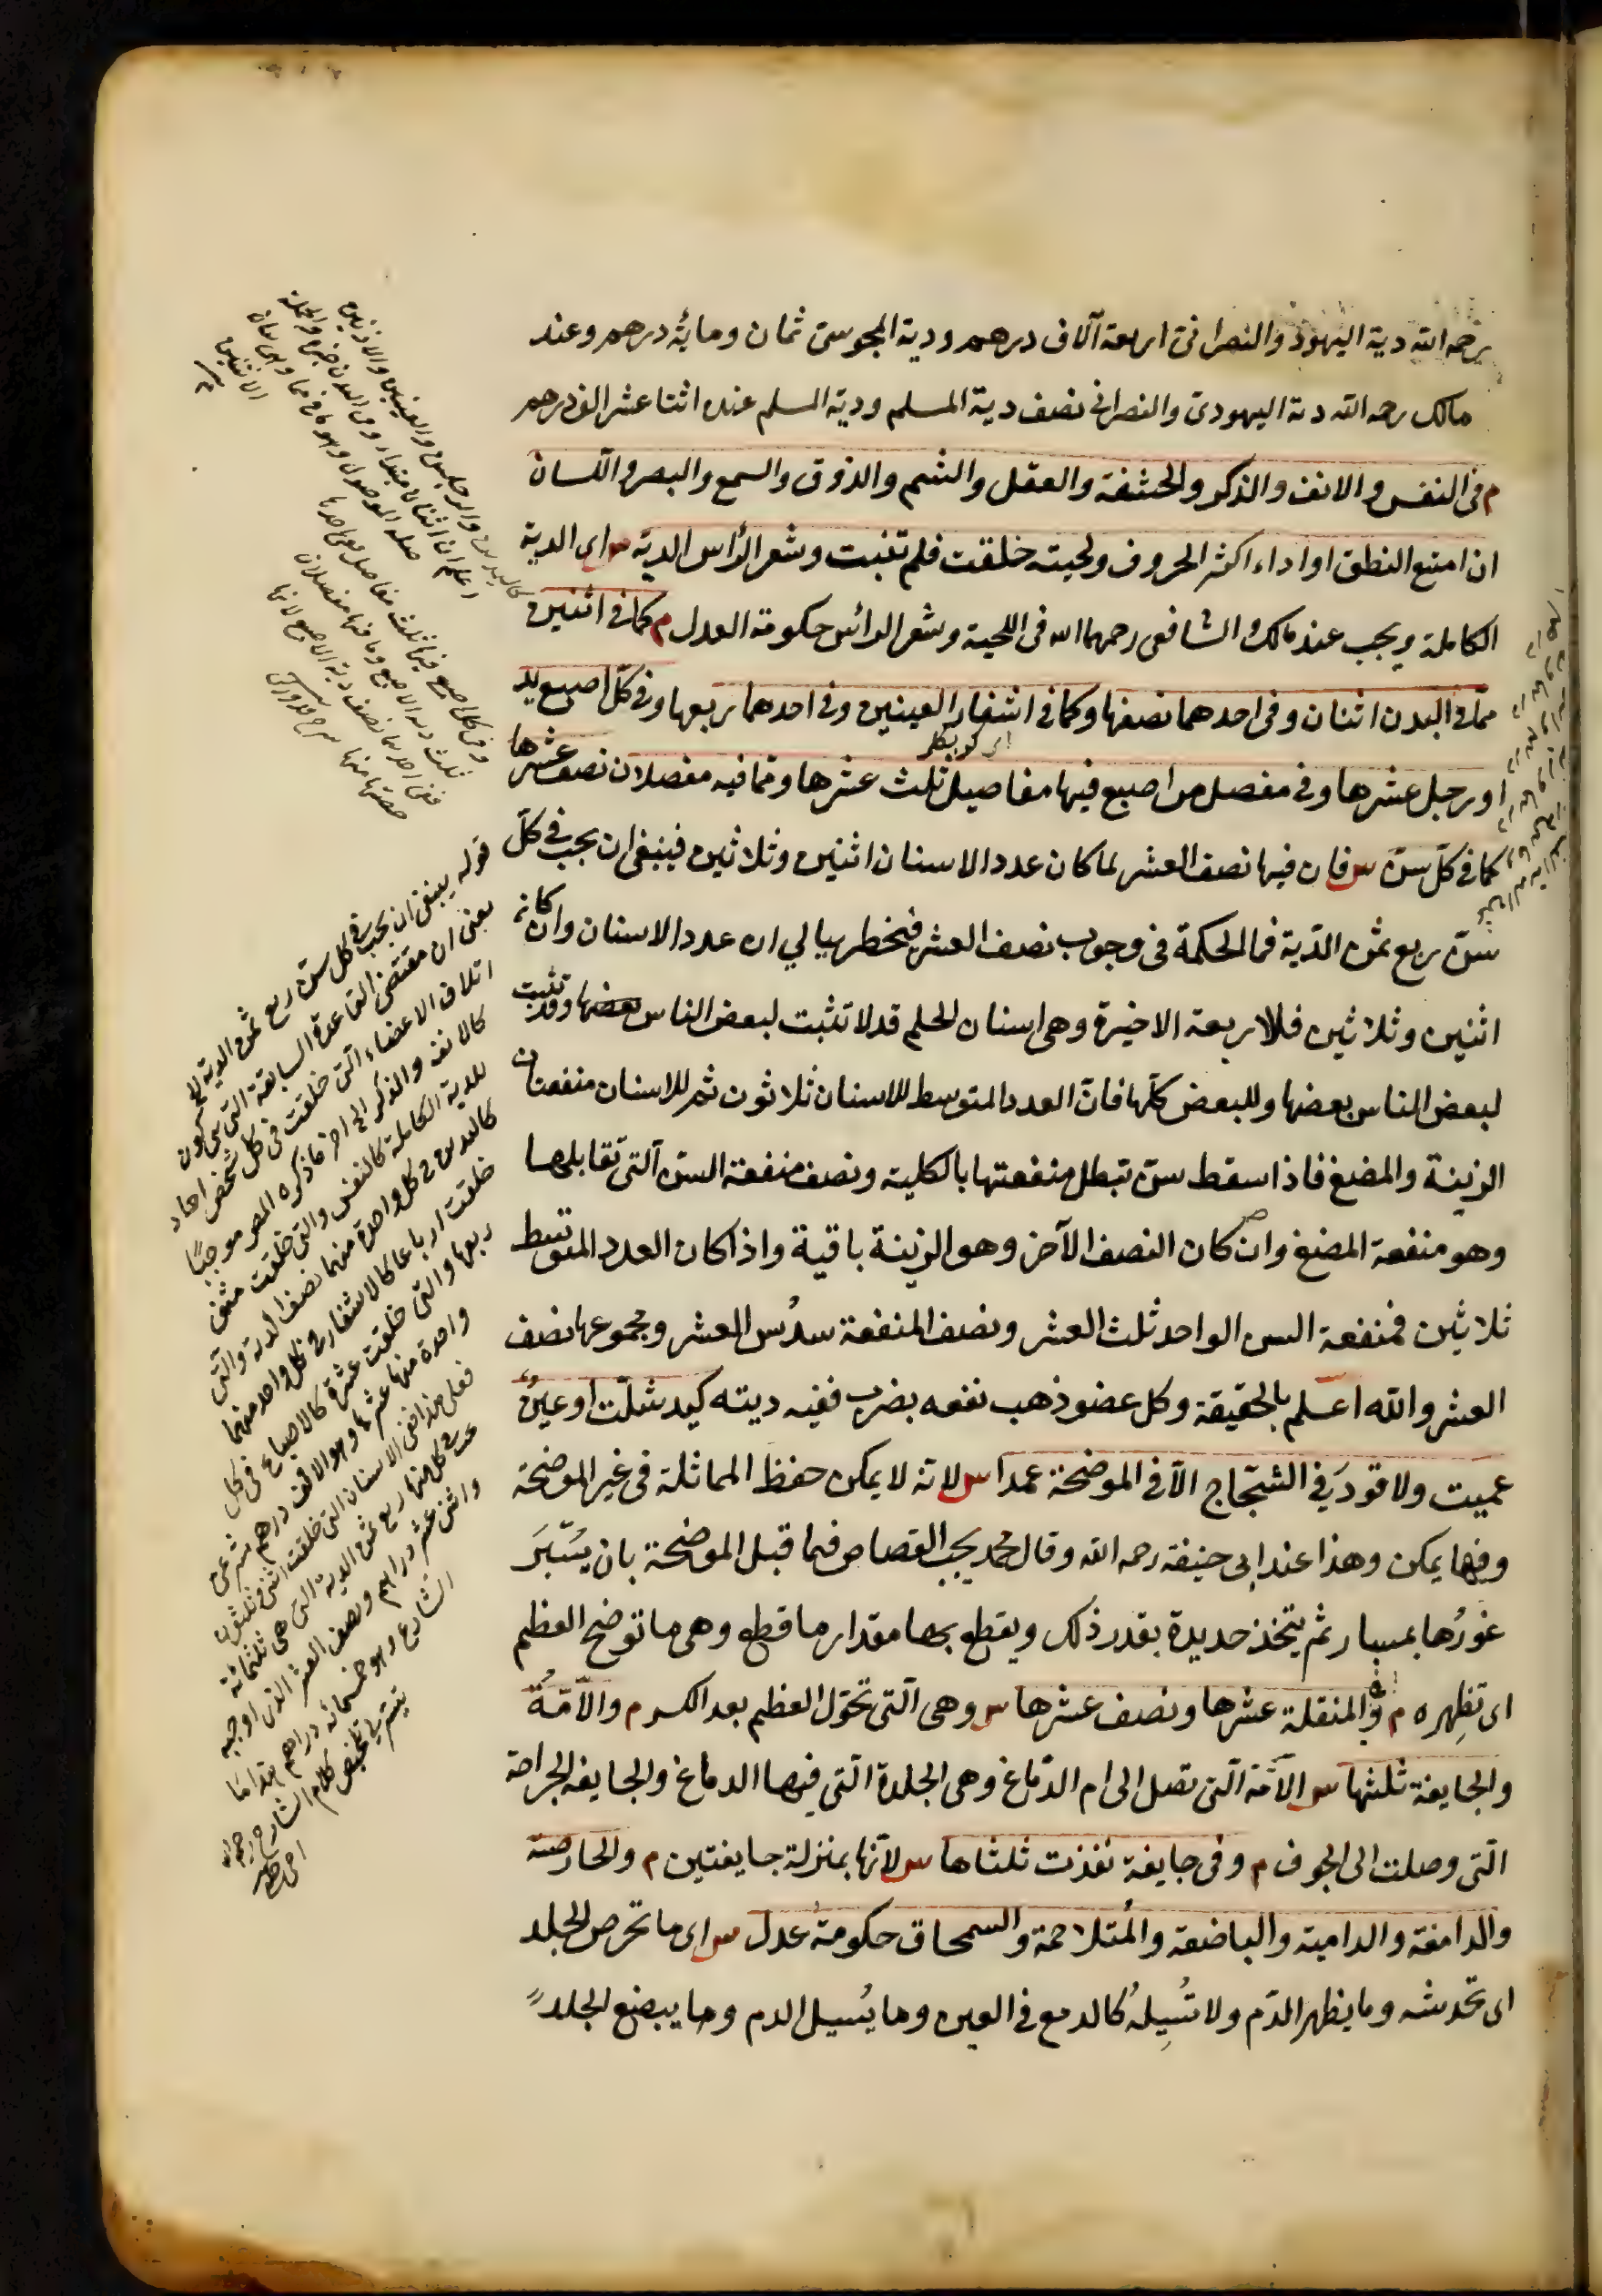 رحمه الله دية اليهود والنصرانى اربعة آلاف درهم ودية المجوسى ثمان ومائة درهم وعند
مالك رحمه الله دية اليهودى والنصرانى نصف دية المسلم ودية المسلم عنده اثنا عشر الف درهم
م فى النفس والانف والذكر والحشفة والعقل والشم والذوق والسمع والبصر واللسان
ان امنع النطق او اداء اكثر الحروف ولحيته خلقت فلم تنبت وشعر الرأس الدية س اى الدية
الكاملة ويجب عند مالك والشافعى رحمهما الله فى اللحية وشعر الرأس حكومة العدل م كما فى اثنين
مما فى البدن اثنان وفى احدهما نصفها وكما فى اشفار العينين وفى احدهما ربعها وفى كل اصبع يد
او رجل عشرها وفى مفصل من اصبع فيها مفاصيل ثلث عشرها ومما فيه مفصلان نصف عشرها
كما فى كل سن س فان فيها نصف العشر لما كان عدد الاسنان اثنين وثلاثين فينبغى ان يجب فى كل
سن ربع ثمن الدية فما الحكمة فى وجوب نصف العشر فيخطر ببالي ان عدد الاسنان وان كان
اثنين وثلاثين فالاربعة الاخيرة وهى اسنان الحلم قد لا تثبت لبعض الناس بعضها وقد تثبت
لبعض الناس بعضها وللبعض كلها فان العدد المتوسط للاسنان ثلاثون ثم للاسنان منفعتان
الزينة والمضغ فاذا سقط سن تبطل منفعتها بالكلية ونصف منفعة السن التى تقابلها
وهو منفعة المضغ وان كان النصف الآخر وهو الزينة باقية واذا كان العدد المتوسط
ثلاثين فمنفعة السن الواحد ثلث العشر ونصف المنفعة سدُس العشر ومجموعها نصف
العشر والله اعلم بالحقيقة وكل عضو ذهب نفعه بضرب ففيه ديته كيد شلّت أو عينٌ
عميت ولا قود فى الشجاج الا فى الموضحة عمدا س لانه لا يمكن حفظ المماثلة فى غير الموضحة
وفيها يمكن وهذا عند ابى حنيفة رحمه الله وقال محمد يجب القصاص فيما قبل الموضحة بان يسبر
غورُها بمسبار ثم يتخذ حديدة بقدر ذلك ويقطع بها مقدار ما قطع وهى ما توضح العظم
اى تظهره م وفى المنقلة عشرها ونصف عشرها س وهى التى تحوّل العظم بعد الكسر م والآمّةُ
والجايفة ثلثها س الآمة التى تصل الى ام الدماغ وهى الجلدة التي فيها الدماغ والجايفة الجراحة
التى وصلت الى الجوف م وفى جايفة نفذت ثلثاها س لانها بمنزلة جايفتين م والحارصة
والدامغة والدامية والباضعة والمتلاحمة والسمحاق حكومةُ عدل س اى ما تحرص الجلد
اى تخدشه وما يظهر الدم ولا تُسِيلُه كالدمع فى العين وما يُسيل الدم وما يبضع الجلد
اى كوبكلر
كاليدين والرجلين والعينين والاذنين
قوله ينبغى ان يجب فى كل سن ربع ثمن الدية الخ
يعنى ان مقتضى القاعدة السابقة التى هى كون
اتلاف الاعضاء التى خلقت فى كل شخص احاد
كالانف والذكر الى اخر ما ذكره المص موجبًا
للدية الكاملة كالنفس والتى خلقت مثنى
كاليدين فى كل واحدة منهما نصف الدية والتى
خلقت ارباعا كالاشفار فى كل واحد منها
ربعها والتى خلقت عشرة كالاصابع فى كل
واحدة منها عشرها وهو الالف درهم شرعى
فعلى هذا ففى الاسنان التى خلقت اثنى وثلثون
يجب فى كل منها ربع ثمن الدية التى هى ثلثمائة
واثنى عشر دراهم ونصف العشر الذى اوجبه
الشارع وهو خمسمائة دراهم هذا ما
تيسر لى تلخيص كلام الشارح رحمه الله